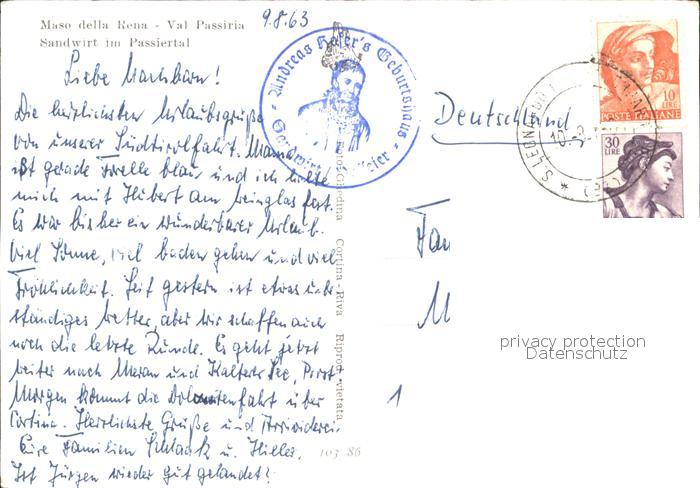 Maso della Rena - Val Passiria
Sandwirt im Passiertal
9.8.63
Liebe Nachbarn!
Die herzlichsten Urlaubsgrüße
von unserer Südtirolfahrt. Mama
ißt gerade Forelle blau und ich halte
mich mit Hubert am Weinglas fest.
Es war bisher ein wunderbarer Urlaub.
Viel Sonne, viel baden gehen und viel
Fröhlichkeit. Seit gestern ist etwas unbe-
ständiges Wetter, aber wir schaffen auch
noch die letzte Runde. Es geht jetzt
weiter nach Meran und Kalterer See, Prost.
Morgen kommt die Dolomitenfahrt über
Cortina. Herzlichste Grüße und Arrividerci.
Eure Familien Schlack u. Hiller.
Ist Jürgen wieder gut gelandet?
Andreas Hofer's Geburtshaus
Sandwirt
Foto Ghedina Cortina - Riva Riprod. vietata
103 86
Deutschland
Fam
M
1
S. LEONARDO
10.8.
10
LIRE
POSTE ITALIANE
30
LIRE
privacy protection
Datenschutz